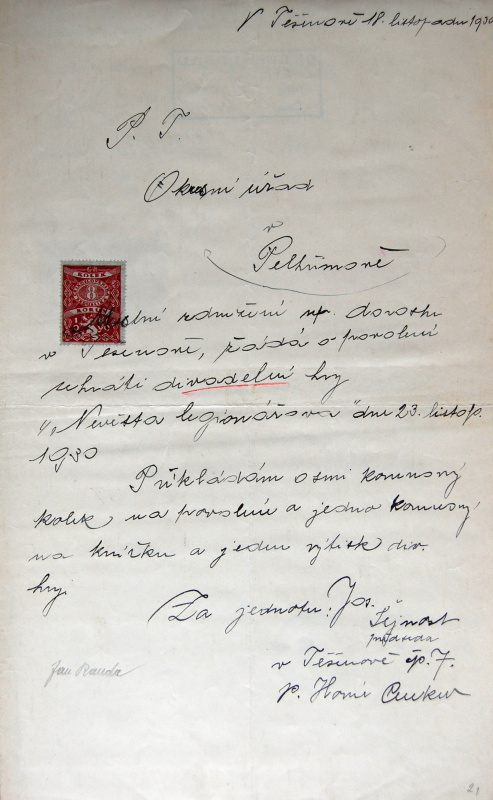 V Těšenově 18. listopadu 1930
P. T.
Okresní úřad
v
Pelhřimově
KOLEK
8
místní sdružení rep. dorostu
v Těšenově, žádá o povolení
sehráti divadelní hry
„Nevěsta legionářova" dne 23. listop.
1930
Přikládám osmi korunový
kolek na povolení a jedno korunový
na knížku a jeden výtisk div.
hry.
Za jednotu: Jos.
Šejnost
předseda
v Těšenově čp. 7.
p. Horní
Jan Randa
21